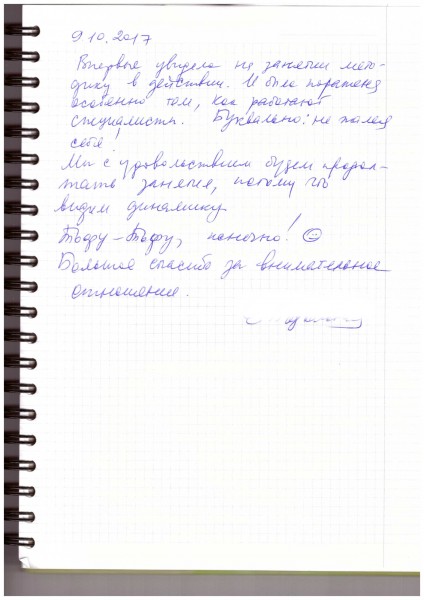 9.10.2017
Впервые увидела на занятии мето-
дику в действии. И была поражена
особенно тем, как работают
специалисты. Буквально: не жалея
себя!
Мы с удовольствием будем продол-
жать занятия, потому что
видим динамику
Тьфу-Тьфу, конечно! ☺
Большое спасибо за внимательное
отношение.